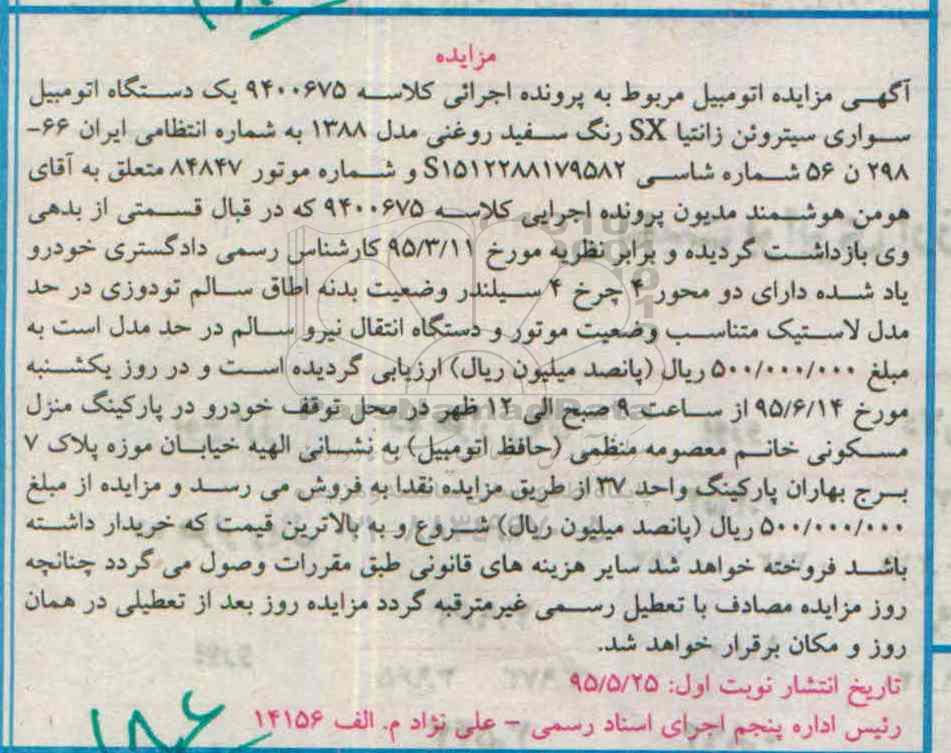 مزایده
آگهی مزایده اتومبیل مربوط به پرونده اجرائی کلاسه ۹۴۰۰۶۷۵ یک دستگاه اتومبیل
سواری سیتروئن زانتیا SX رنگ سفید روغنی مدل ۱۳۸۸ به شماره انتظامی ایران ۶۶-
۲۹۸ ن ۵۶ شماره شاسی S۱۵۱۲۲۸۸۱۷۹۵۸۲ و شماره موتور ۸۴۸۴۷ متعلق به آقای
هومن هوشمند مدیون پرونده اجرایی کلاسه ۹۴۰۰۶۷۵ که در قبال قسمتی از بدهی
وی بازداشت گردیده و برابر نظریه مورخ ۹۵/۳/۱۱ کارشناس رسمی دادگستری خودرو
یاد شده دارای دو محور ۴ چرخ ۴ سیلندر وضعیت بدنه اطاق سالم تودوزی در حد
مدل لاستیک متناسب وضعیت موتور و دستگاه انتقال نیرو سالم در حد مدل است به
مبلغ ۵۰۰/۰۰۰/۰۰۰ ریال (پانصد میلیون ریال) ارزیابی گردیده است و در روز یکشنبه
مورخ ۹۵/۶/۱۴ از ساعت ۹ صبح الی ۱۲ ظهر در محل توقف خودرو در پارکینگ منزل
مسکونی خانم معصومه منظمی (حافظ اتومبیل) به نشانی الهیه خیابان موزه پلاک ۷
برج بهاران پارکینگ واحد ۳۷ از طریق مزایده نقدا به فروش می رسد و مزایده از مبلغ
۵۰۰/۰۰۰/۰۰۰ ریال (پانصد میلیون ریال) شروع و به بالاترین قیمت که خریدار داشته
باشد فروخته خواهد شد سایر هزینه های قانونی طبق مقررات وصول می گردد چنانچه
روز مزایده مصادف با تعطیل رسمی غیرمترقبه گردد مزایده روز بعد از تعطیلی در همان
روز و مکان برقرار خواهد شد.
تاریخ انتشار نوبت اول: ۹۵/۵/۲۵
رئیس اداره پنجم اجرای اسناد رسمی - علی نژاد م. الف ۱۴۱۵۶
۱۸۶